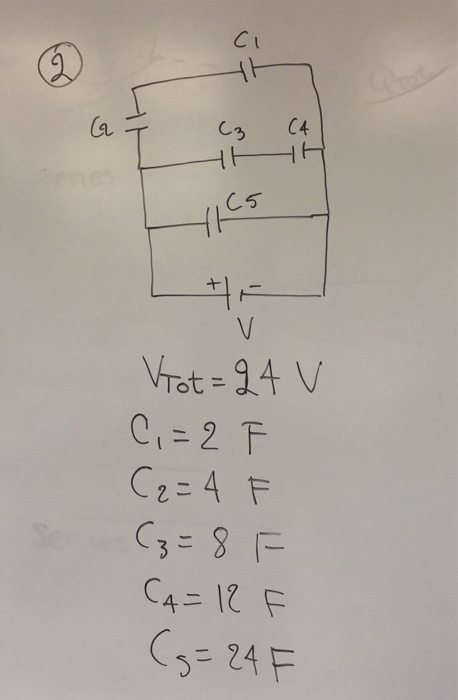 2
C1
C2
C3 C4
C5
+ -
V
VTot = 24 V
C1 = 2 F
C2 = 4 F
C3 = 8 F
C4 = 12 F
C5 = 24 F